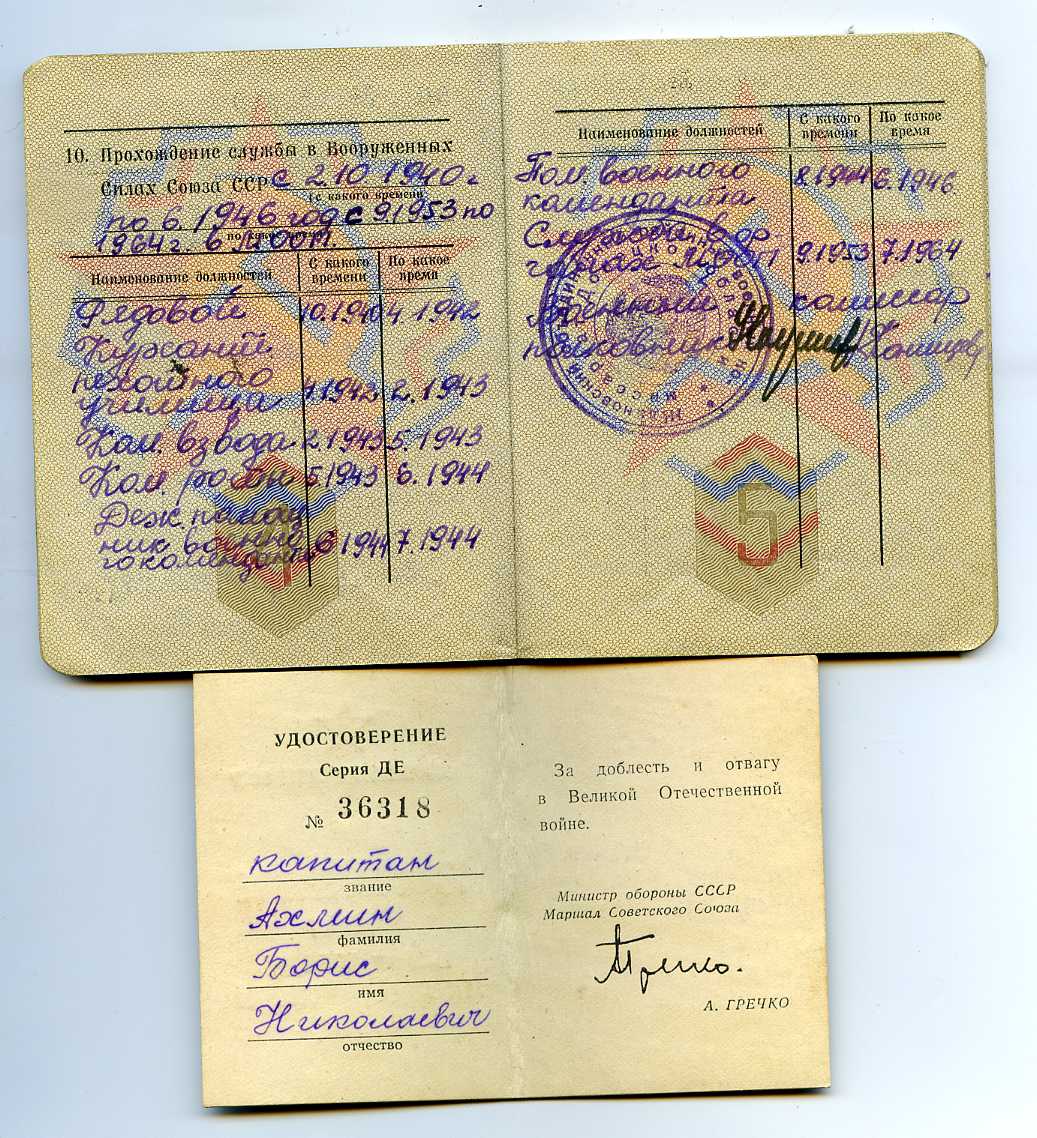 10. Прохождение службы в Вооруженных
Силах Союза ССР с 2.10 1940 г
(с какого времени)
по 6.1946 год с 9.1953 по
1964 г. в МООП.
Наименование должностей
С какого времени
По какое время
Рядовой 10.1940 4 1942
Курсант
пехотного
училища 2.1943
Ком. взвода 2.1943 5.1943
Ком. роты 5.1943 6.1944
Деж. помощ
ник военно
го коменданта 6 1944 7.1944
4
Наименование должностей
С какого времени
По какое время
Пом. военного
коменданта 8.1944 6.1946
Служба в ор-
ганах МООП 9.1953 7.1964
Военный комиссар
полковник
5
УДОСТОВЕРЕНИЕ
Серия ДЕ
№ 36318
капитан
звание
Ахмин
фамилия
Борис
имя
Николаевич
отчество
За доблесть и отвагу
в Великой Отечественной
войне.
Министр обороны СССР
Маршал Советского Союза
А. ГРЕЧКО